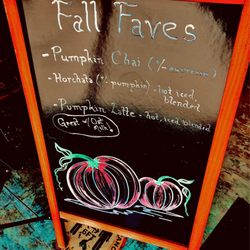 Fall Faves
- Pumpkin Chai
- Horchata (% pumpkin) - hot, iced,
blended
- Pumpkin Latte - hot, iced, blended
Great w/ Oat
Milk!